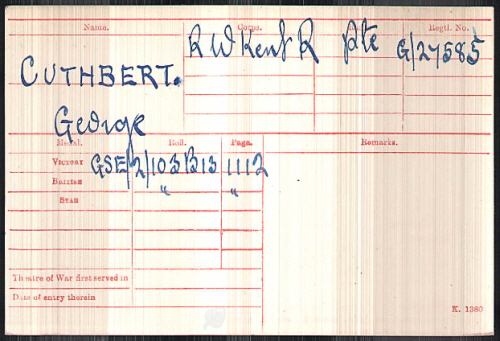 Name. Corps. Rank. Regtl. No.
CUTHBERT. R W Kent R Pte G/27585
George
Medal. Roll. Page. Remarks.
VICTORY GSE/2/103 B13 1112
BRITISH " "
STAR
Theatre of War first served in
Date of entry therein
K. 1380